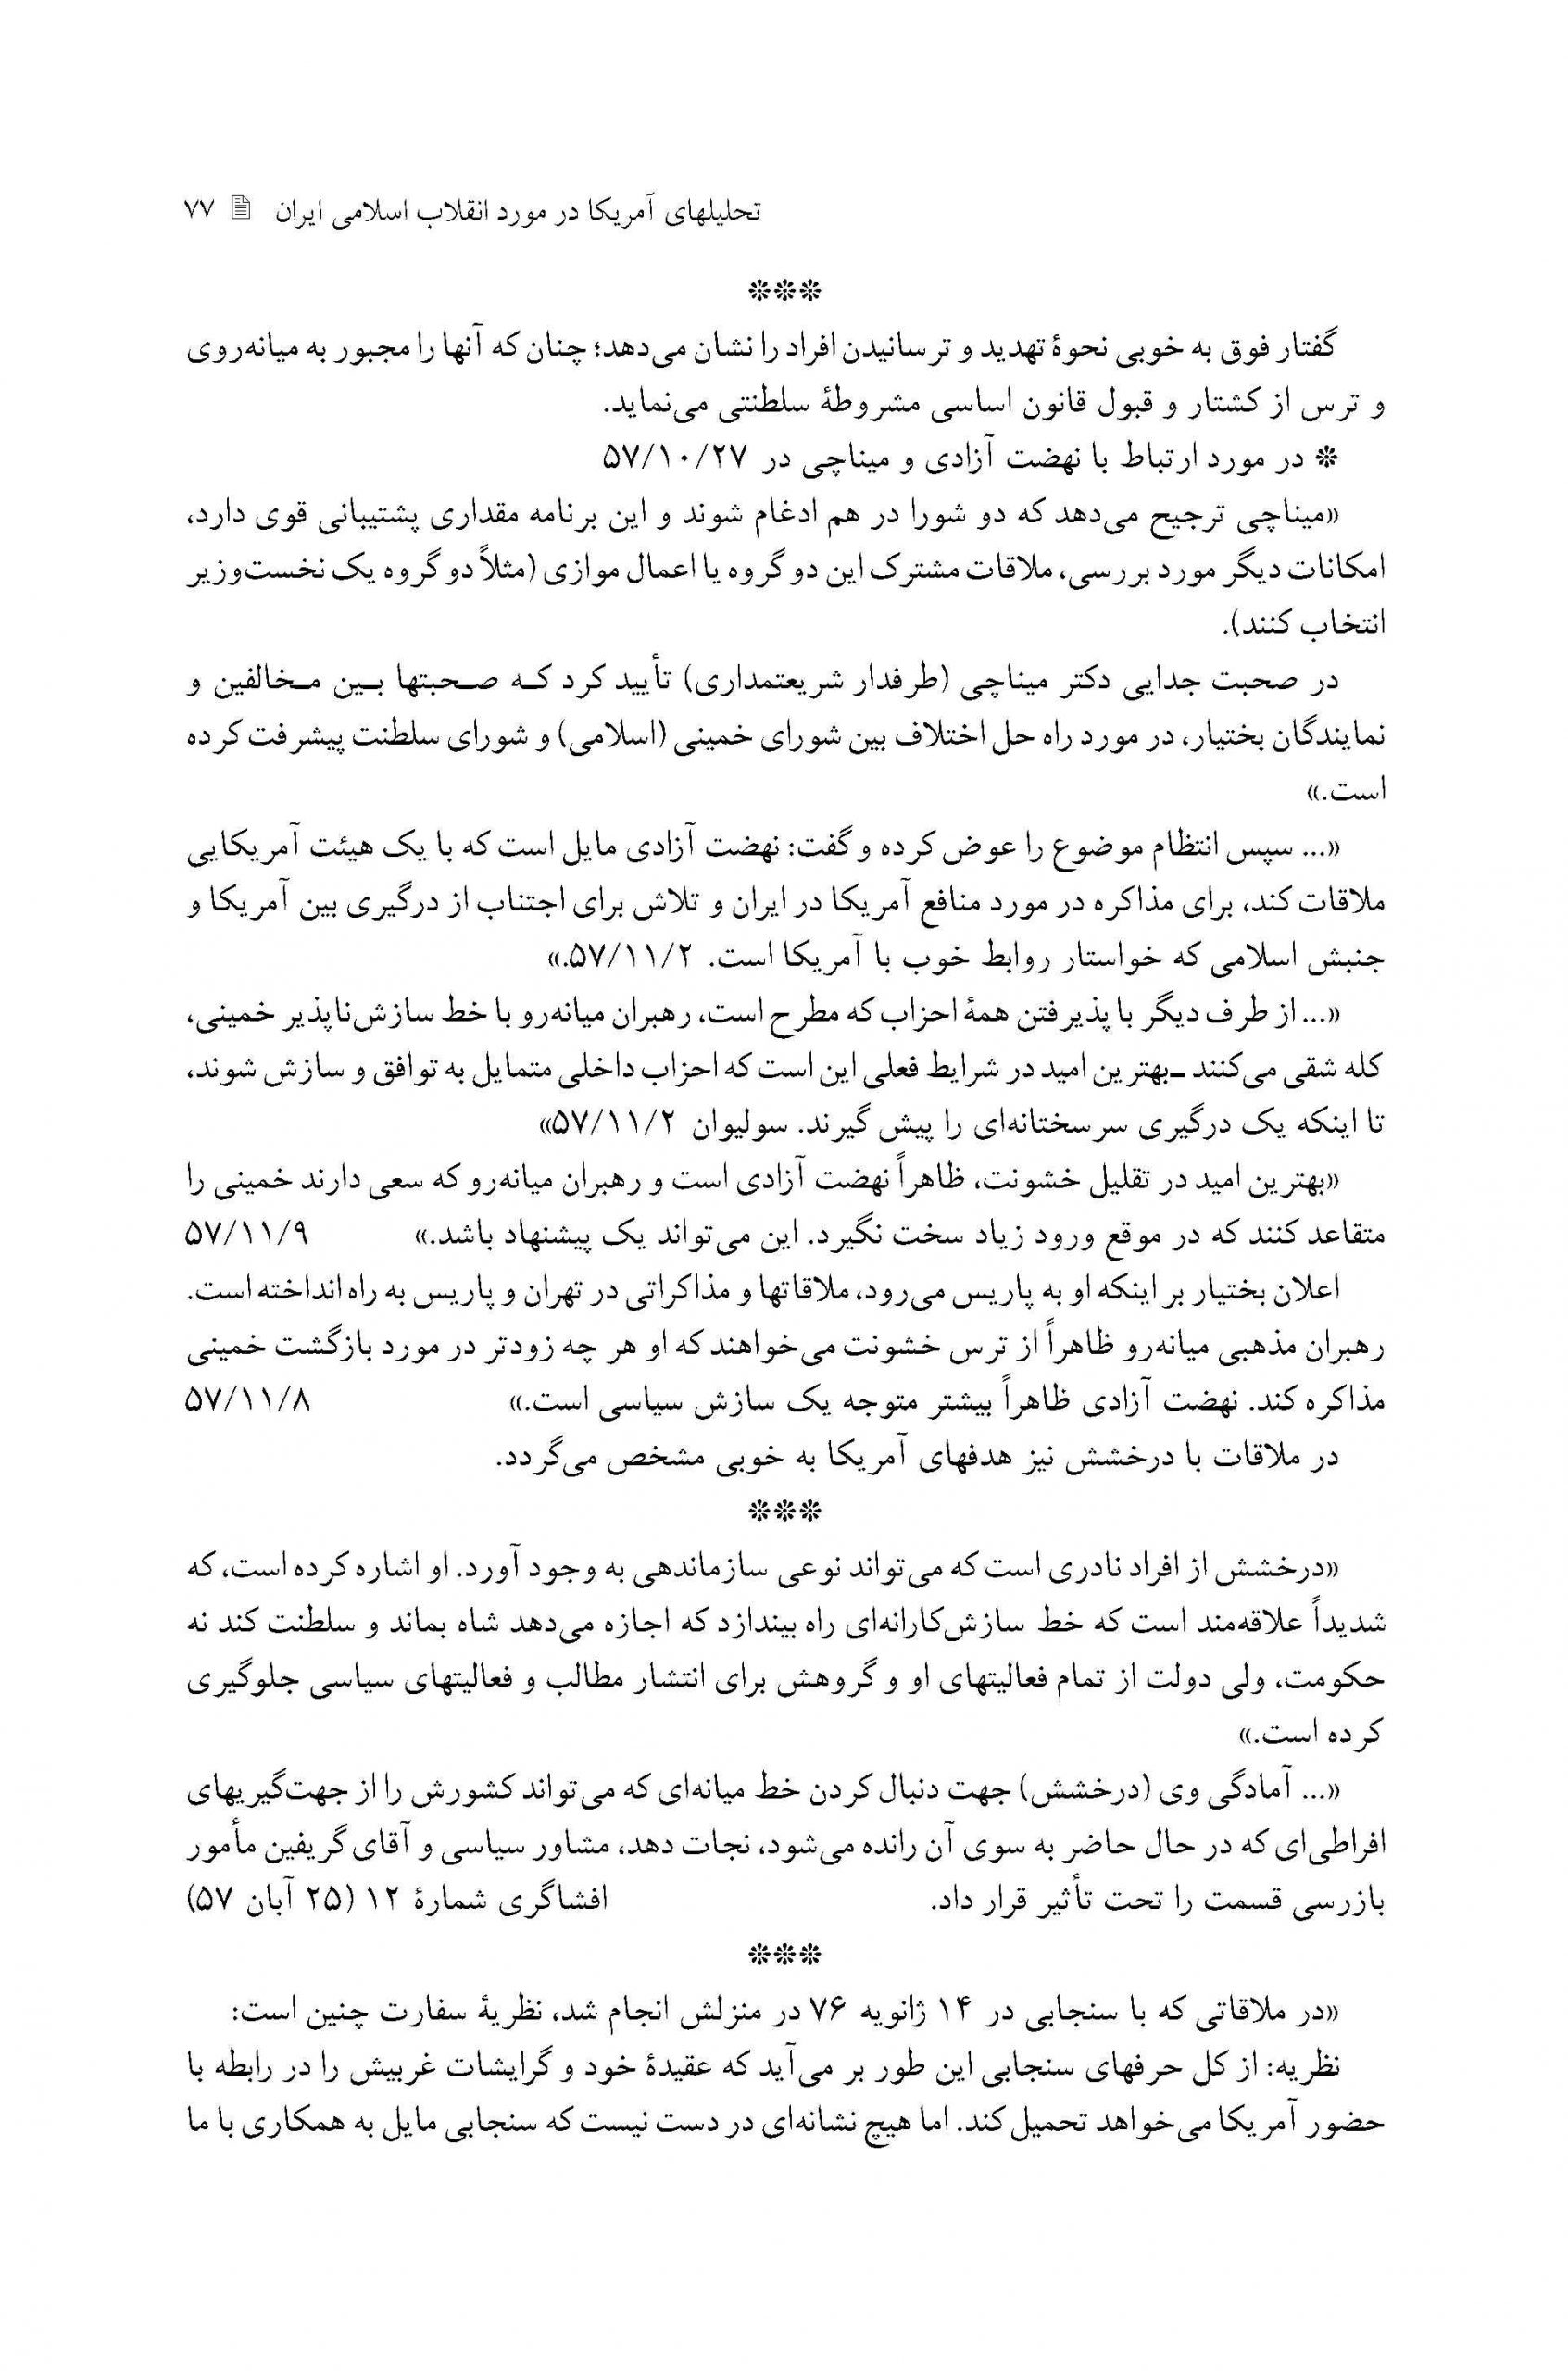 تحلیلهای آمریکا در مورد انقلاب اسلامی ایران ۷۷
***
گفتار فوق به خوبی نحوهٔ تهدید و ترسانیدن افراد را نشان می‌دهد؛ چنان که آنها را مجبور به میانه‌روی
و ترس از کشتار و قبول قانون اساسی مشروطهٔ سلطنتی می‌نماید.
* در مورد ارتباط با نهضت آزادی و میناچی در ۵۷/۱۰/۲۷
«میناچی ترجیح می‌دهد که دو شورا در هم ادغام شوند و این برنامه مقداری پشتیبانی قوی دارد،
امکانات دیگر مورد بررسی، ملاقات مشترک این دو گروه یا اعمال موازی (مثلاً دو گروه یک نخست‌وزیر
انتخاب کنند).
در صحبت جدایی دکتر میناچی (طرفدار شریعتمداری) تأیید کرد که صحبتها بین مخالفین و
نمایندگان بختیار، در مورد راه حل اختلاف بین شورای خمینی (اسلامی) و شورای سلطنت پیشرفت کرده
است.»
«... سپس انتظام موضوع را عوض کرده و گفت: نهضت آزادی مایل است که با یک هیئت آمریکایی
ملاقات کند، برای مذاکره در مورد منافع آمریکا در ایران و تلاش برای اجتناب از درگیری بین آمریکا و
جنبش اسلامی که خواستار روابط خوب با آمریکا است. ۵۷/۱۱/۲.»
«... از طرف دیگر با پذیرفتن همهٔ احزاب که مطرح است، رهبران میانه‌رو با خط سازش‌ناپذیر خمینی،
کله شقی می‌کنند ـ‌بهترین امید در شرایط فعلی این است که احزاب داخلی متمایل به توافق و سازش شوند،
تا اینکه یک درگیری سرسختانه‌ای را پیش گیرند. سولیوان ۵۷/۱۱/۲»
«بهترین امید در تقلیل خشونت، ظاهراً نهضت آزادی است و رهبران میانه‌رو که سعی دارند خمینی را
متقاعد کنند که در موقع ورود زیاد سخت نگیرد. این می‌تواند یک پیشنهاد باشد.» ۵۷/۱۱/۹
اعلان بختیار بر اینکه او به پاریس می‌رود، ملاقاتها و مذاکراتی در تهران و پاریس به راه انداخته است.
رهبران مذهبی میانه‌رو ظاهراً از ترس خشونت می‌خواهند که او هر چه زودتر در مورد بازگشت خمینی
مذاکره کند. نهضت آزادی ظاهراً بیشتر متوجه یک سازش سیاسی است.» ۵۷/۱۱/۸
در ملاقات با درخشش نیز هدفهای آمریکا به خوبی مشخص می‌گردد.
***
«درخشش از افراد نادری است که می‌تواند نوعی سازماندهی به وجود آورد. او اشاره کرده است، که
شدیداً علاقه‌مند است که خط سازش‌کارانه‌ای راه بیندازد که اجازه می‌دهد شاه بماند و سلطنت کند نه
حکومت، ولی دولت از تمام فعالیتهای او و گروهش برای انتشار مطالب و فعالیتهای سیاسی جلوگیری
کرده است.»
«... آمادگی وی (درخشش) جهت دنبال کردن خط میانه‌ای که می‌تواند کشورش را از جهت‌گیریهای
افراطی‌ای که در حال حاضر به سوی آن رانده می‌شود، نجات دهد، مشاور سیاسی و آقای گریفین مأمور
بازرسی قسمت را تحت تأثیر قرار داد. افشاگری شمارهٔ ۱۲ (۲۵ آبان ۵۷)
***
«در ملاقاتی که با سنجابی در ۱۴ ژانویه ۷۶ در منزلش انجام شد، نظریهٔ سفارت چنین است:
نظریه: از کل حرفهای سنجابی این طور بر می‌آید که عقیدهٔ خود و گرایشات غربیش را در رابطه با
حضور آمریکا می‌خواهد تحمیل کند. اما هیچ نشانه‌ای در دست نیست که سنجابی مایل به همکاری با ما